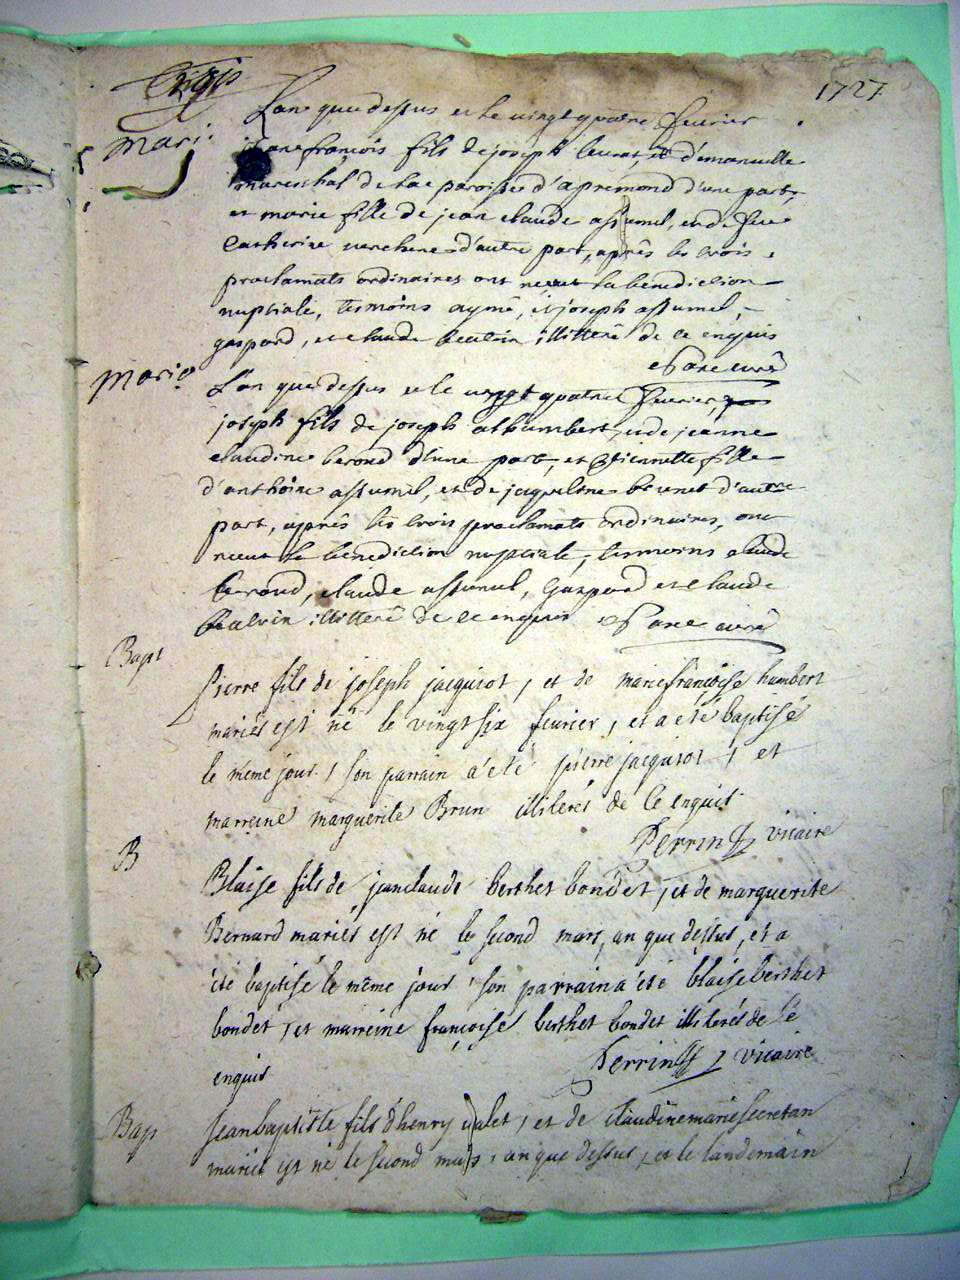 1727
L'an que dessus et le vingt quatre fevrier
Mari.
françois fils de joseph et d'emanuelle
mareschal de la paroisse d'apremond d'une part,
et marie fille de jean claude assumel, et de feue
Catherine d'autre part, après les trois
proclamats ordinaires ont receut la benediction
nuptiale, tesmoins aymé, et joseph assumel,
gaspard, et claude beatrix illitteré de ce enquis
curé
Maria
L'an que dessus et le vingt quatre fevrier,
joseph fils de joseph alhumbert, et de jeanne
claudine berod d'une part, et Etiennette fille
d'anthoine assumel, et de jaqueline brunet d'autre
part, après les trois proclamats ordinaires, ont
receut la benediction nuptiale, tesmoins claude
berod, claude assumel, Gaspard et claude
beatrix illitteré de ce enquis curé
Bapt
Pierre fils de joseph jacquiot, et de marie françoise humbert
mariés est né le vingt six fevrier, et a eté baptisé
le même jour, son parrain a été pierre jacquiot, et
marreine marguerite Brun illiterés de ce enquis
Perrin vicaire
B
Blaise fils de jean claude berthet bondet, et de marguerite
Bernard mariés est né le second mars, an que dessus, et a
été baptisé le même jour son parrain a été blaise berthet
bondet, et marreine françoise berthet bondet illiterés de ce
enquis
Perrin vicaire
Bap
Jean baptiste fils d'henry valet, et de claudine marie secretan
mariés est né le second mars, an que dessus, et le landemain